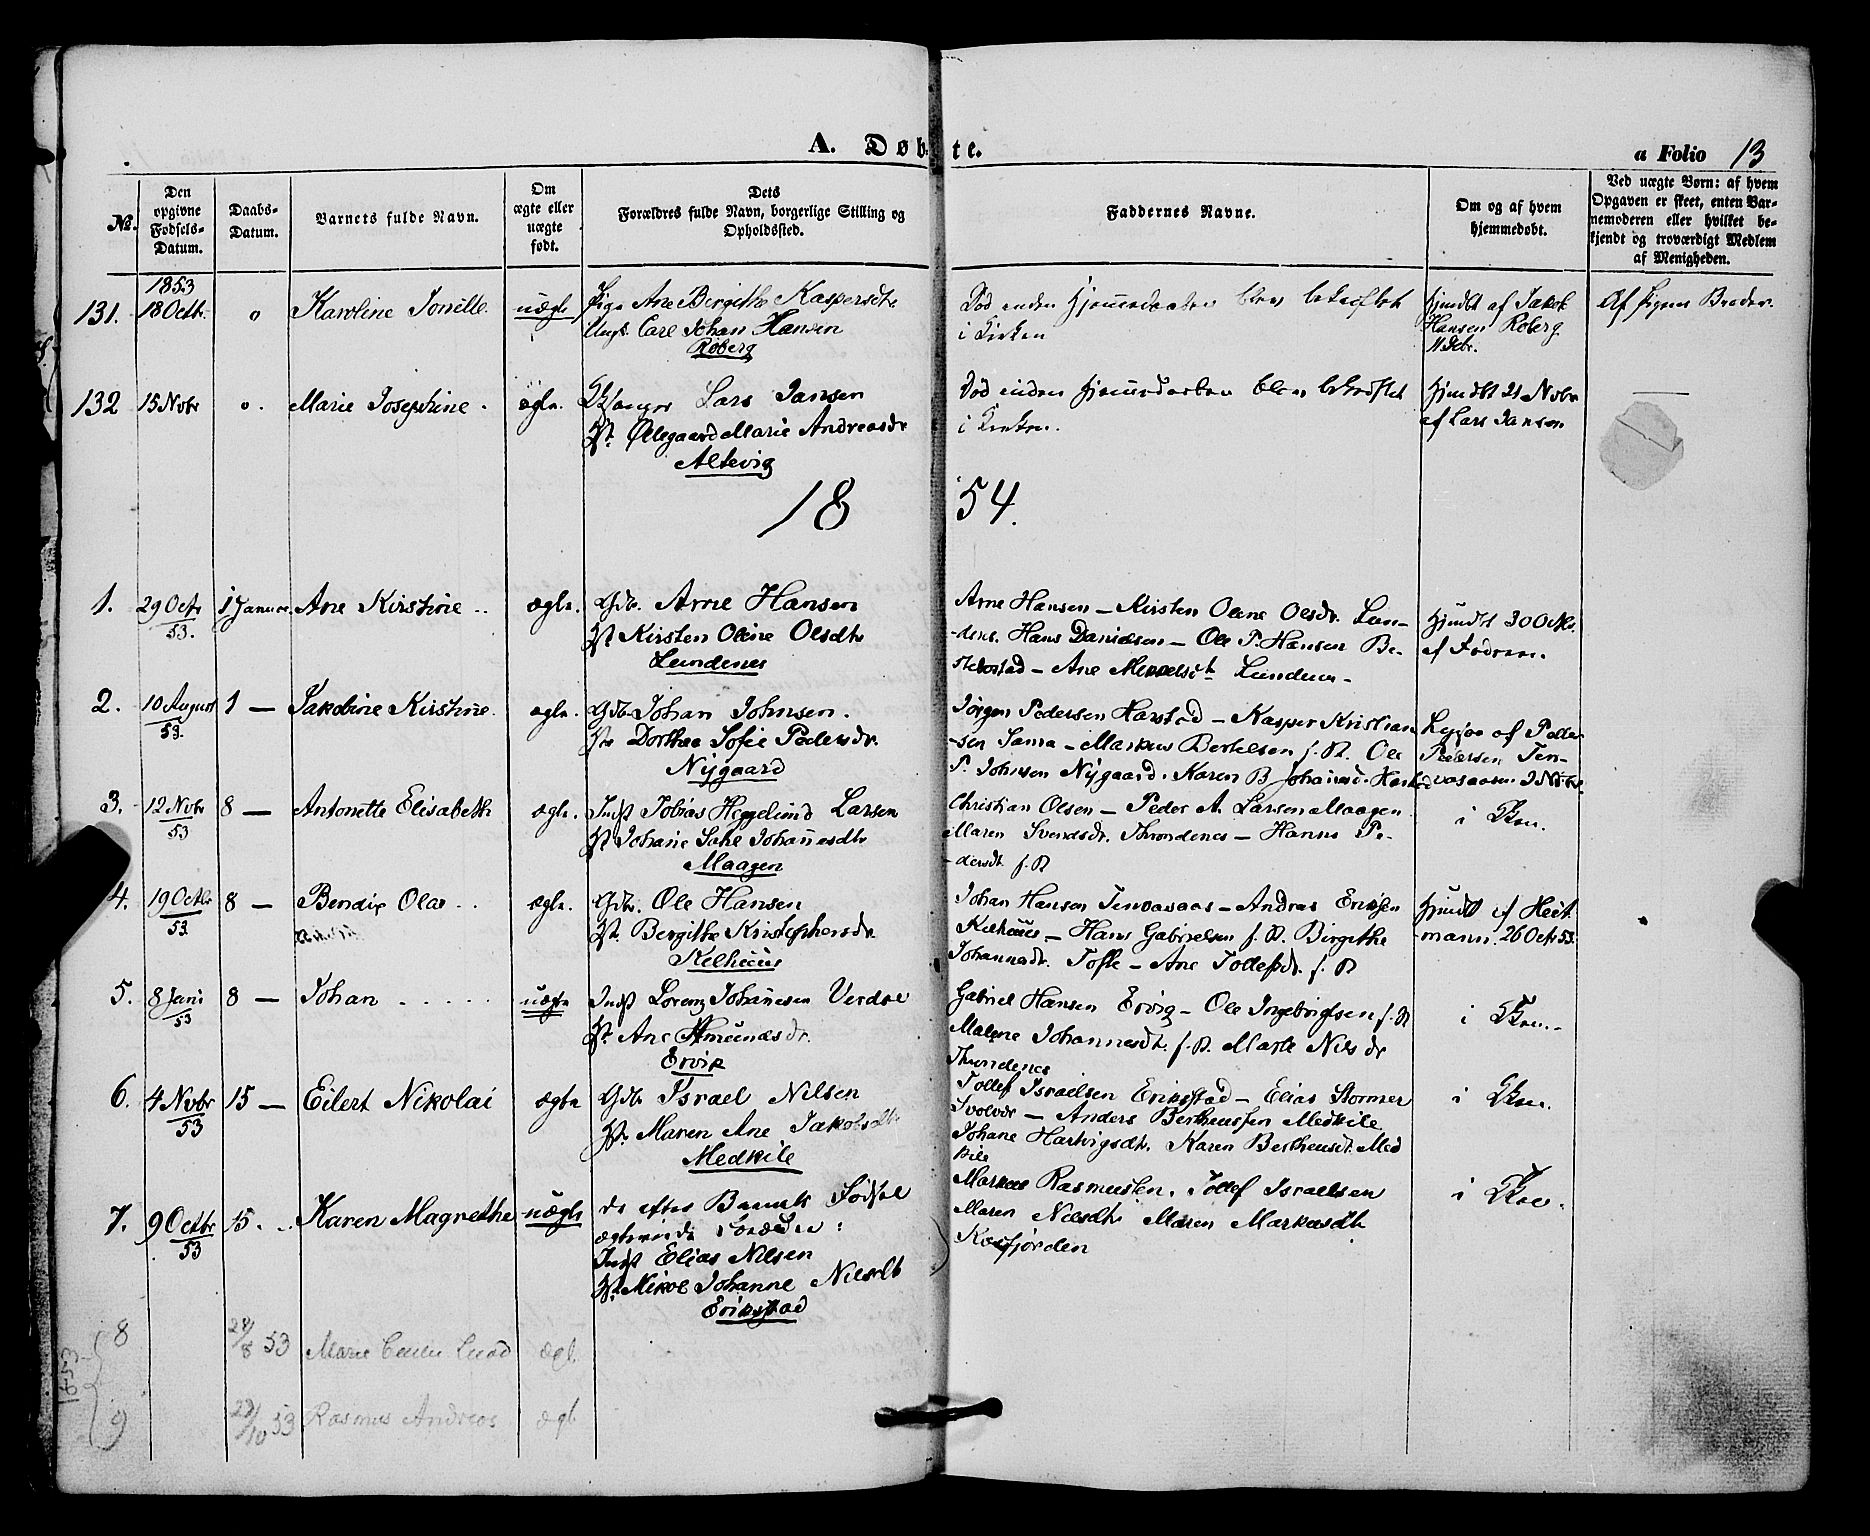 A. Døbte.
a Folio 13
No.
Den opgivne Fødsels-Datum.
Daabs-Datum.
Barnets fulde Navn.
Om ægte eller uægte født.
Dets Forældres fulde Navn, borgerlige Stilling og Opholdssted.
Faddernes Navne.
Om og af hvem hjemmedøbt.
Ved uægte Børn: af hvem Opgaven er skeet, enten Barnemoderen eller hvilket bekjendt og troværdigt Medlem af Menigheden.
1853
131. 18 Octb. " Karoline Jonille uægte
Pige Ane Birgithe Kaspersdtr
Ungk. Carl Johan Hansen
Røberg
Død inden Hjemmedaaben blev bekræftet
i Kirken
hjmdt af Jakob
Hansen Røberg
Af Pigens Broder
132 15 Nvbr ". Marie Josephine. ægte.
Lars Jansen
Ølegaard Marie Andreasdr
Altevig
Død inden Hjemmedaaben blev bekræftet
i Kirken.
hjmdt 21 Novbr
af Lars Jansen
18 54.
1. 29 Octr 53. 1 Januar Ane Kirstine ægte.
Gdb. Arne Hansen
Kirsten Oline Olsdtr
Lundenes
Arne Hansen - Kirsten Olene Olsdr. Lun-
denes. Hans Danielsen - Ole P. Hansen Be-
- Ane Mikkelsdt Lundenes -
hjmdt 30 Octbr.
af Faderen.
2. 10 August 53. 1 - Jakobine Kirstine. ægte.
Gdb Johan Johnsen.
Dorthea Sofie Pedersdr.
Nygaard
Jørgen Pedersen Harstad - Kasper Kristian
sen Sama - Markus Bertelsen f. St. Ole
P. Johnsen Nygaard. Karen B Johannesd. Harstad
af Peder
Pedersen Ten-
vasaasen
3. 12 Nvbr 53 8 - Antonette Elisabeth ægte.
Indst Tobias Heggelund Larsen
Johane Johannesdtr
Maagen
Christian Olsen - Peder A. Larsen Maagen.
Maren Svendsdr. Throndenes - Hanna Pe-
-dersdt. f. St
i
4. 19 Octbr 53. 8 - Bendix Olai ægte.
Gdb. Ole Hansen
Bergithe Kristophersdr.
Kilhuus
Johan Hansen Tenvasaas - Andreas Eriksen
Kilhuus - Hans Gabrielsen f. St. Birgithe
Johannesdr. - Ane Tollefsdr. f. St
hjmdt af Heit-
mann. 26 Oct 53.
5. 8 Juni 53 8 - Johan uægte
Indst Lorenz Johannesen Verdal
Ane Amundsdr.
Ervik
Gabriel Hansen Ervig - Ole Ingebrigtsen f. St
Malene Johannesdt. f. St. Marte Nilsdr
Throndenes
i
6. 4 Nvbr 53 15 - Eilert Nikolai ægte
Gdb Israel Nilsen
Maren Ane Jakobsdtr
Medkile
Tollef Israelsen Erikstad - Elias Stormer
Svolvær - Anders Bertheussen Medkile
Johane Hartvigsdt. Karen Bertheusdt. Med
kile
i
7. 9 Octbr 53 15. Karen Magrethe uægte
de efter Barnets Fødsel
Indst Elias Nilsen
Johanne Nilsdt
Erikstad
Markus Rasmussen. Tollef Israelsen
Maren Nilsdt Maren Markusdt
Kasfjorden
i
1853
8 28/8 53 Marie ægt.
9 29/10 53 Rasmus Andreas ægt.